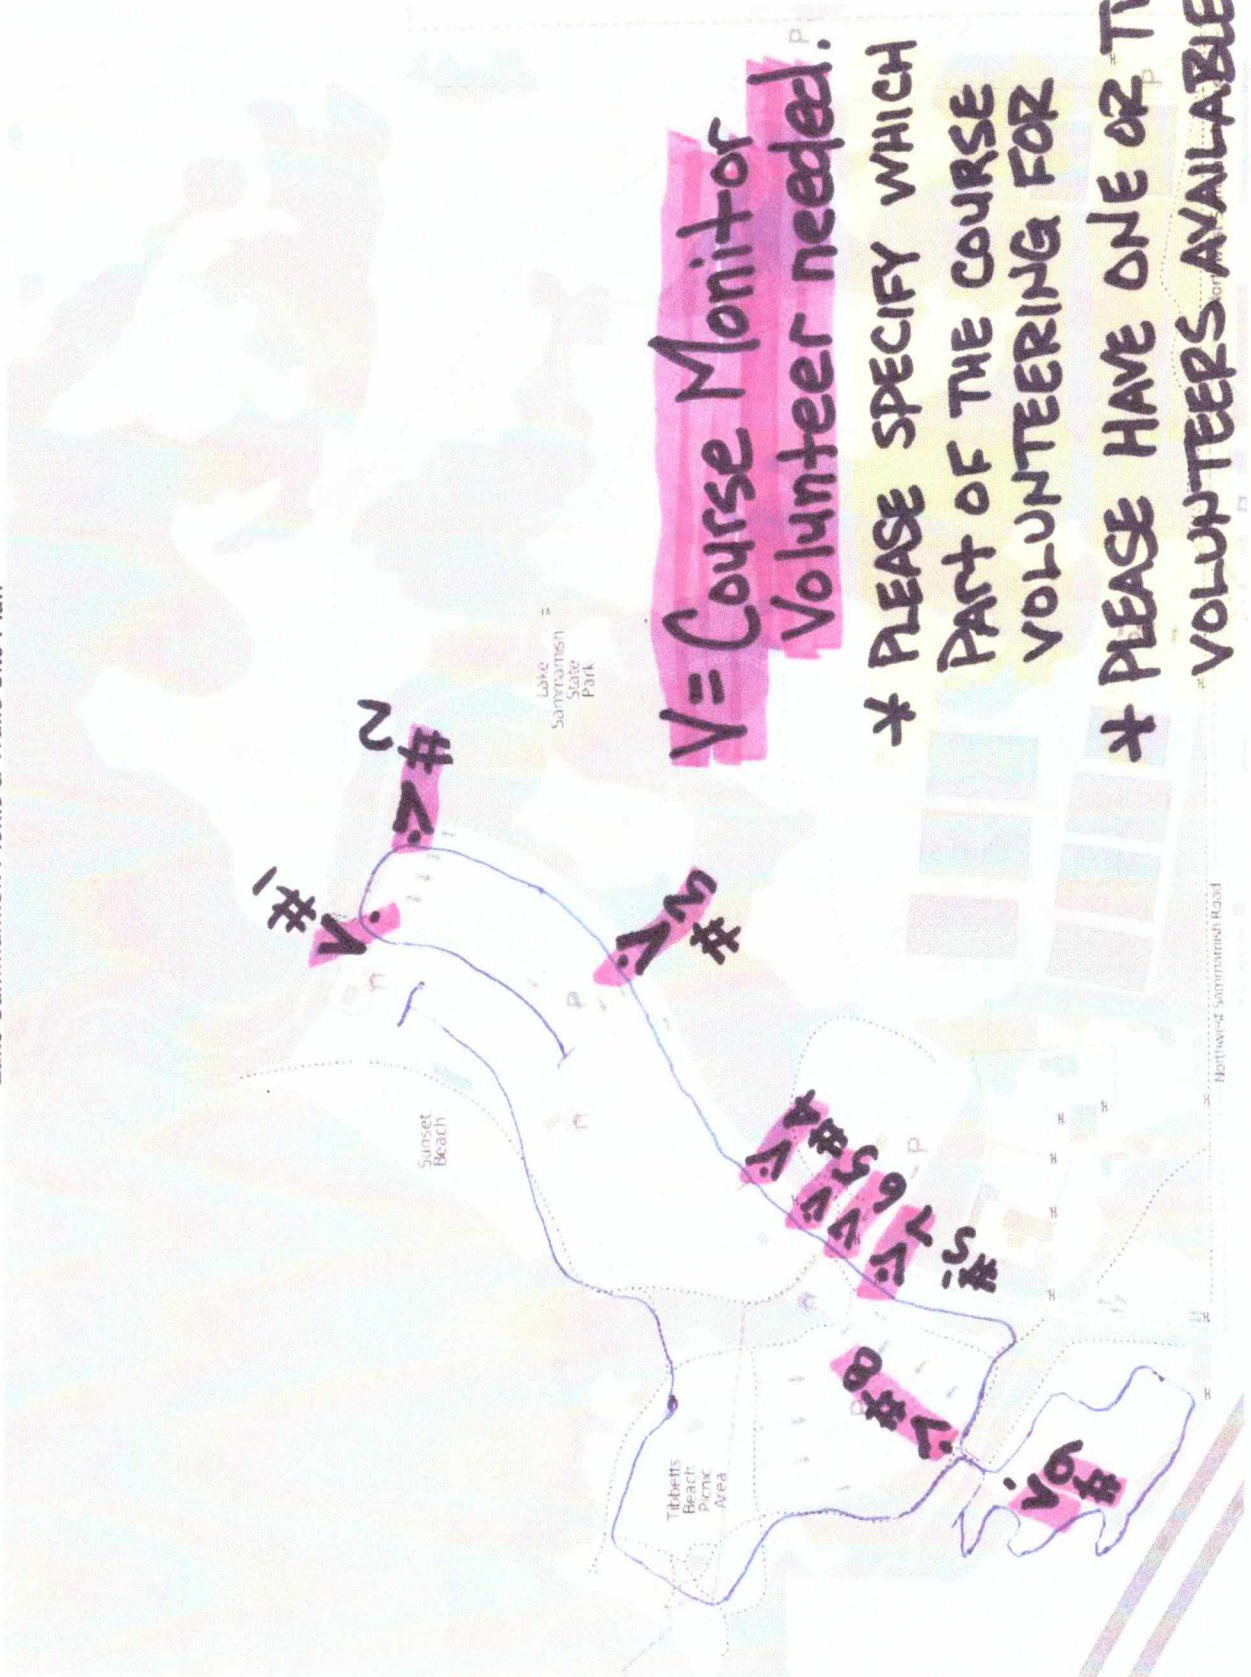 V = Course Monitor
Volunteer needed.
* PLEASE SPECIFY WHICH
PART OF THE COURSE
VOLUNTEERING FOR
* PLEASE HAVE ONE OR
VOLUNTEERS AVAILABLE
V #1
V #2
V #3
V #4
V #5
V 6
V 7
#'s
V #8
#9 V
Lake
Sammamish
State
Park
Sunset
Beach
Tibbetts
Beach
Picnic
Area
Northwest Sammamish Road
P
P
P
P
P